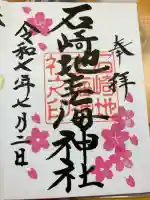 奉拝
石崎地主海神社
令和七年七月二日